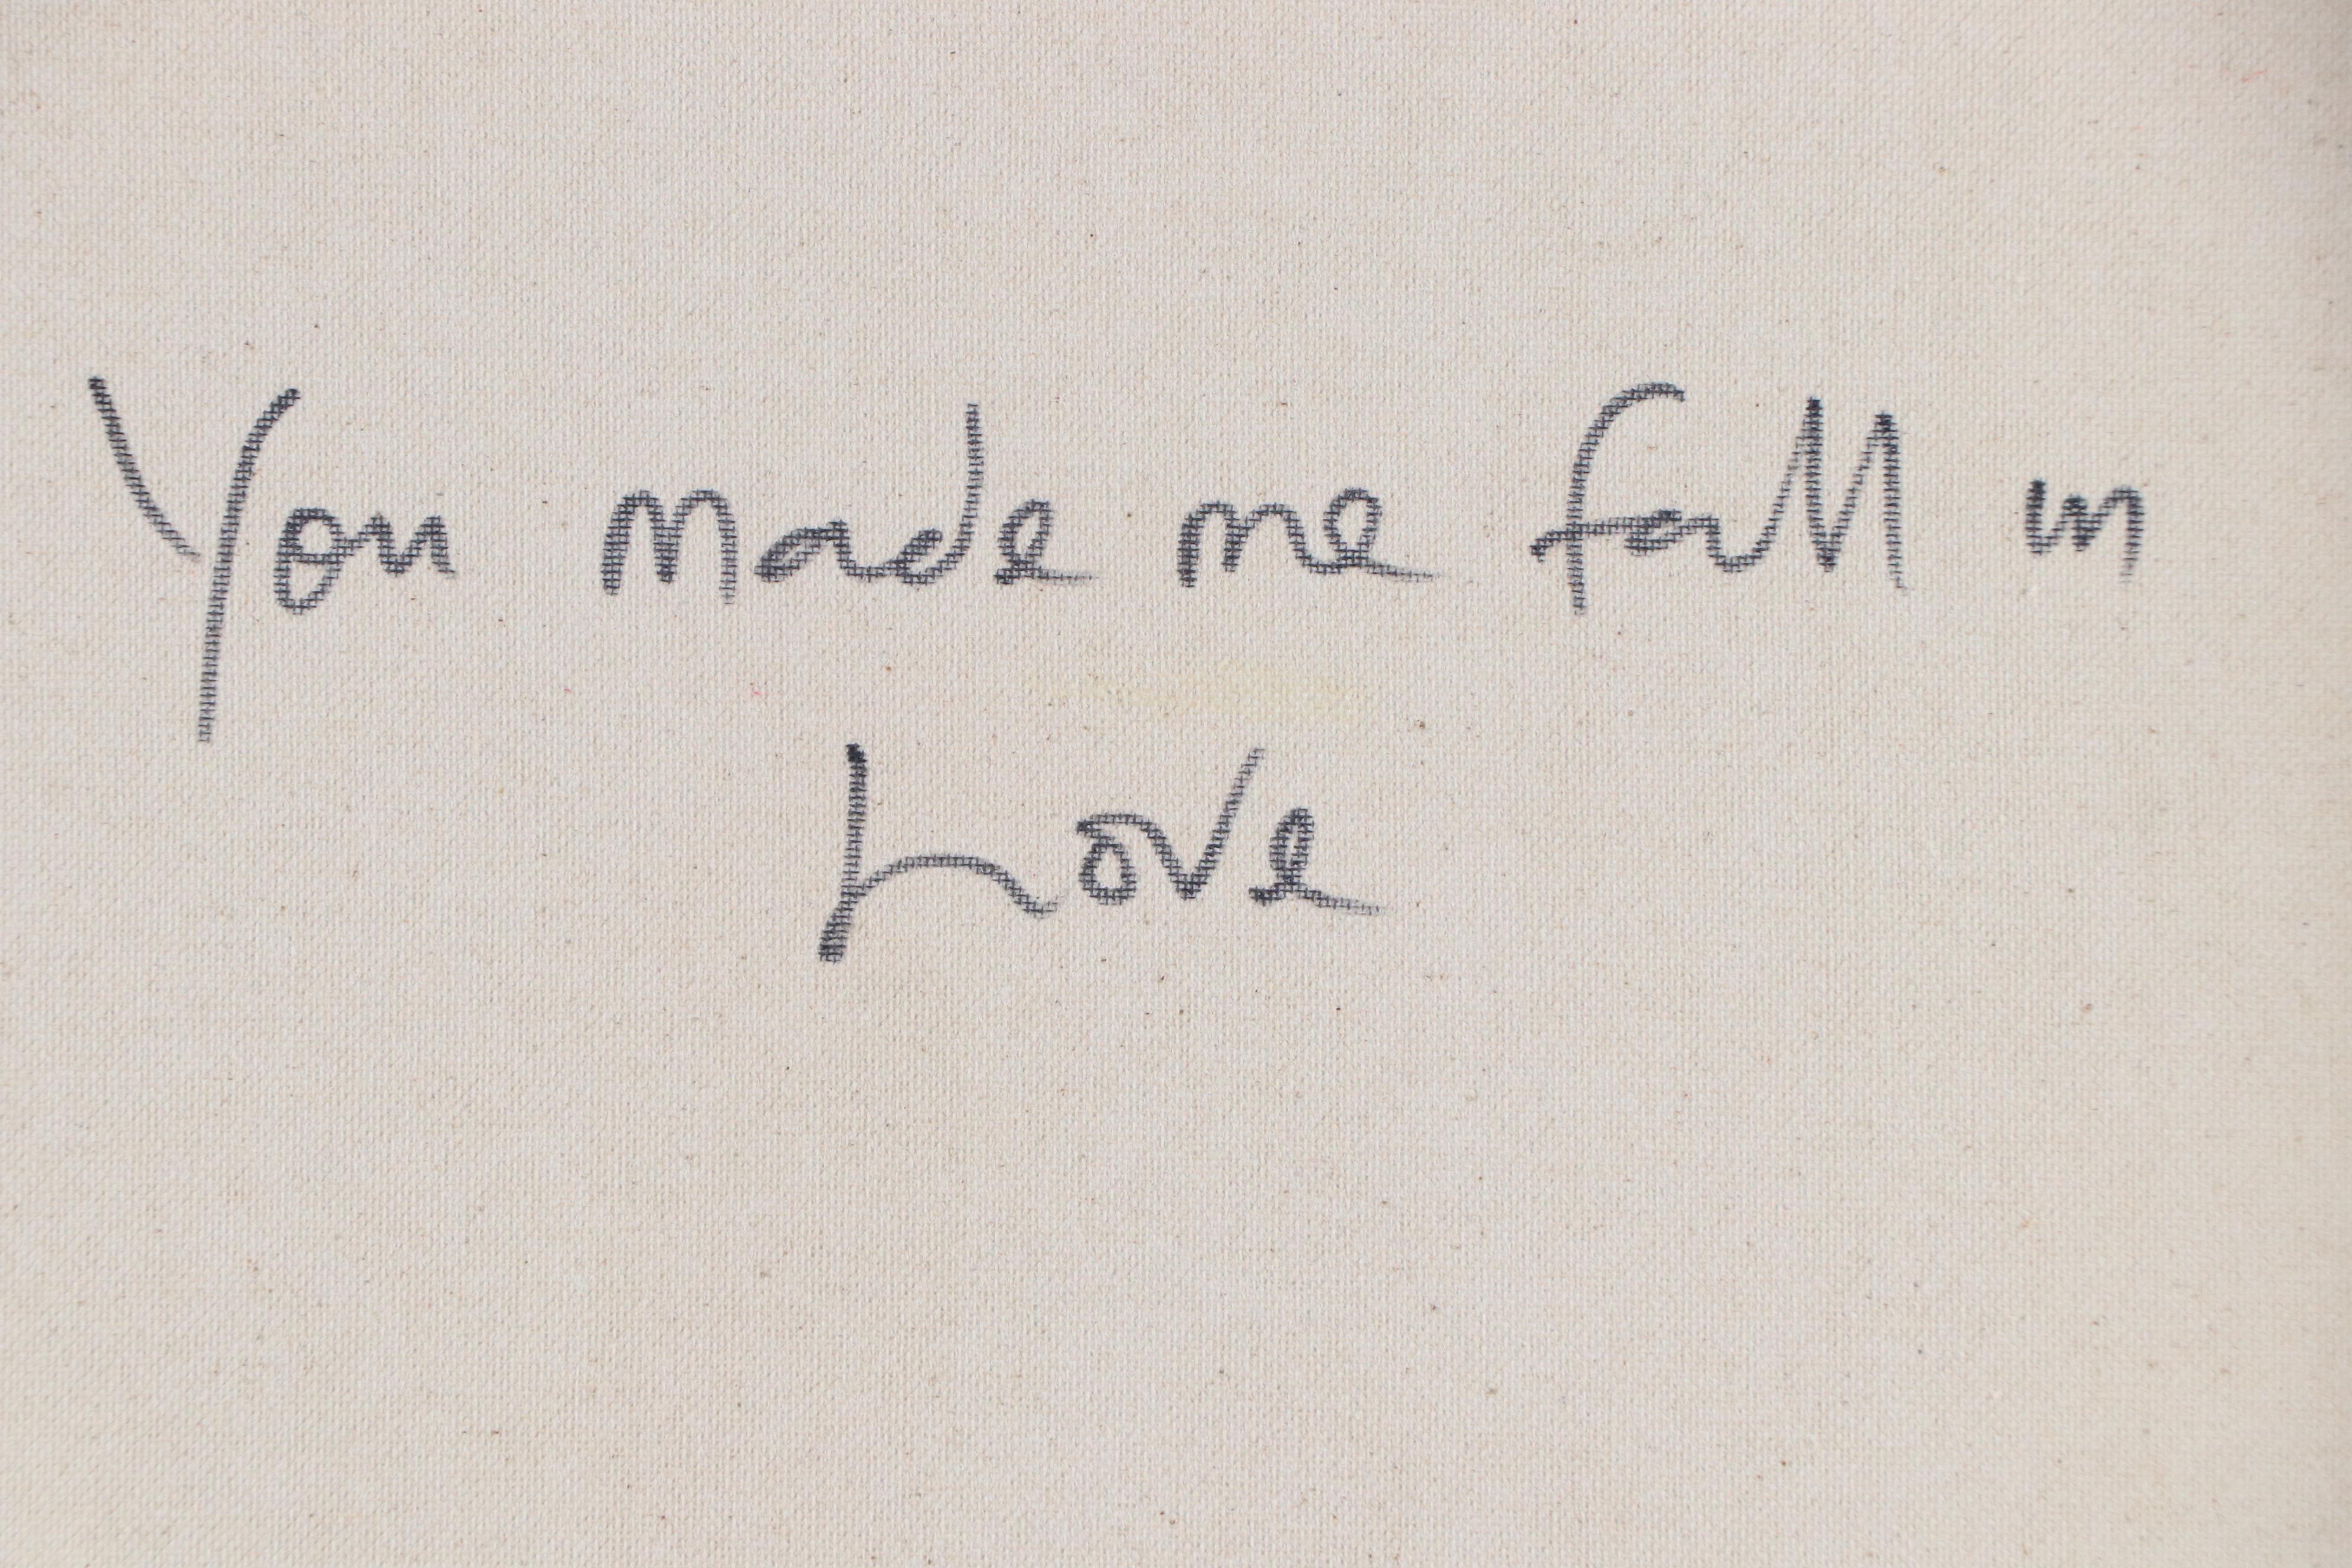 You made me fall in
Love